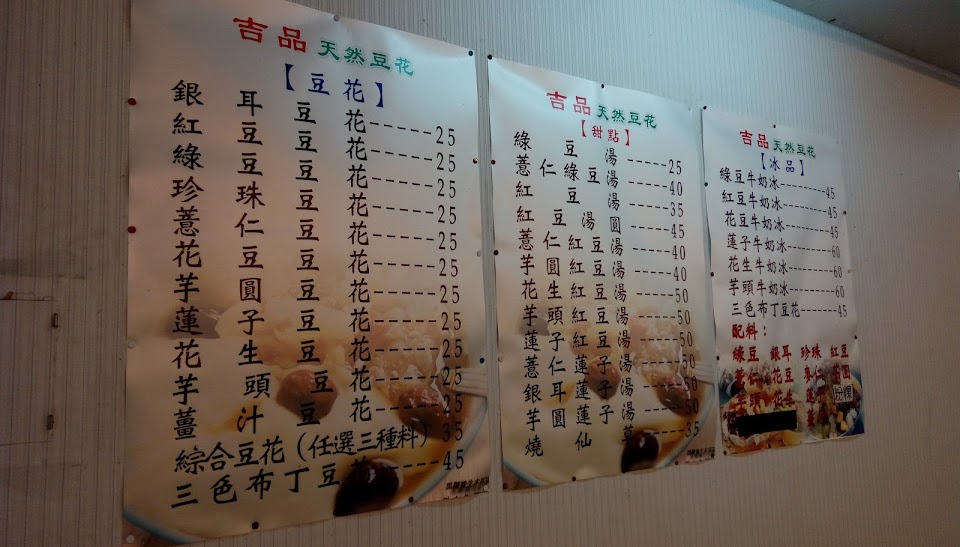 吉品 天然豆花
【豆花】
銀耳豆花------25
紅豆豆花------25
綠豆豆花------25
珍珠豆花------25
薏仁豆花------25
花豆豆花------25
芋圓豆花------25
蓮子豆花------25
花生豆花------25
芋頭豆花------25
薑汁豆花------25
綜合豆花(任選三種料) 35
三色布丁豆花-----45
吉品 天然豆花
【甜點】
綠豆湯-----25
薏仁綠豆湯-----40
紅豆湯-----35
紅豆湯圓-----45
薏仁紅豆湯-----40
芋圓紅豆湯-----40
花生紅豆湯-----50
芋頭紅豆湯-----50
蓮子紅豆湯-----50
薏仁蓮子湯-----50
銀耳蓮子湯-----50
芋圓蓮子湯-----50
燒仙草-----35
吉品 天然豆花
【冰品】
綠豆牛奶冰--------45
紅豆牛奶冰--------45
花豆牛奶冰--------45
蓮子牛奶冰--------60
花生牛奶冰--------60
芋頭牛奶冰--------60
三色布丁豆花------45
配料：
綠豆 銀耳 珍珠 紅豆
薏仁 花豆 麥仁
芋頭 花生 粉粿